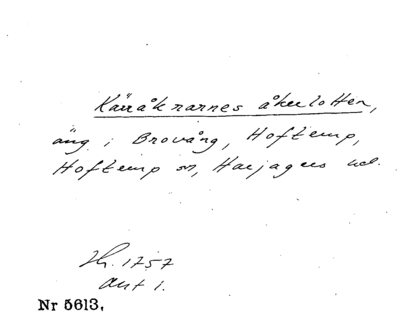 Käråkrarnes åkerlotten,
äng i Brovång, Hofterup,
Hofterup sn, Harjagers hd.
Lh. 1757
akt 1.
Nr 5613,